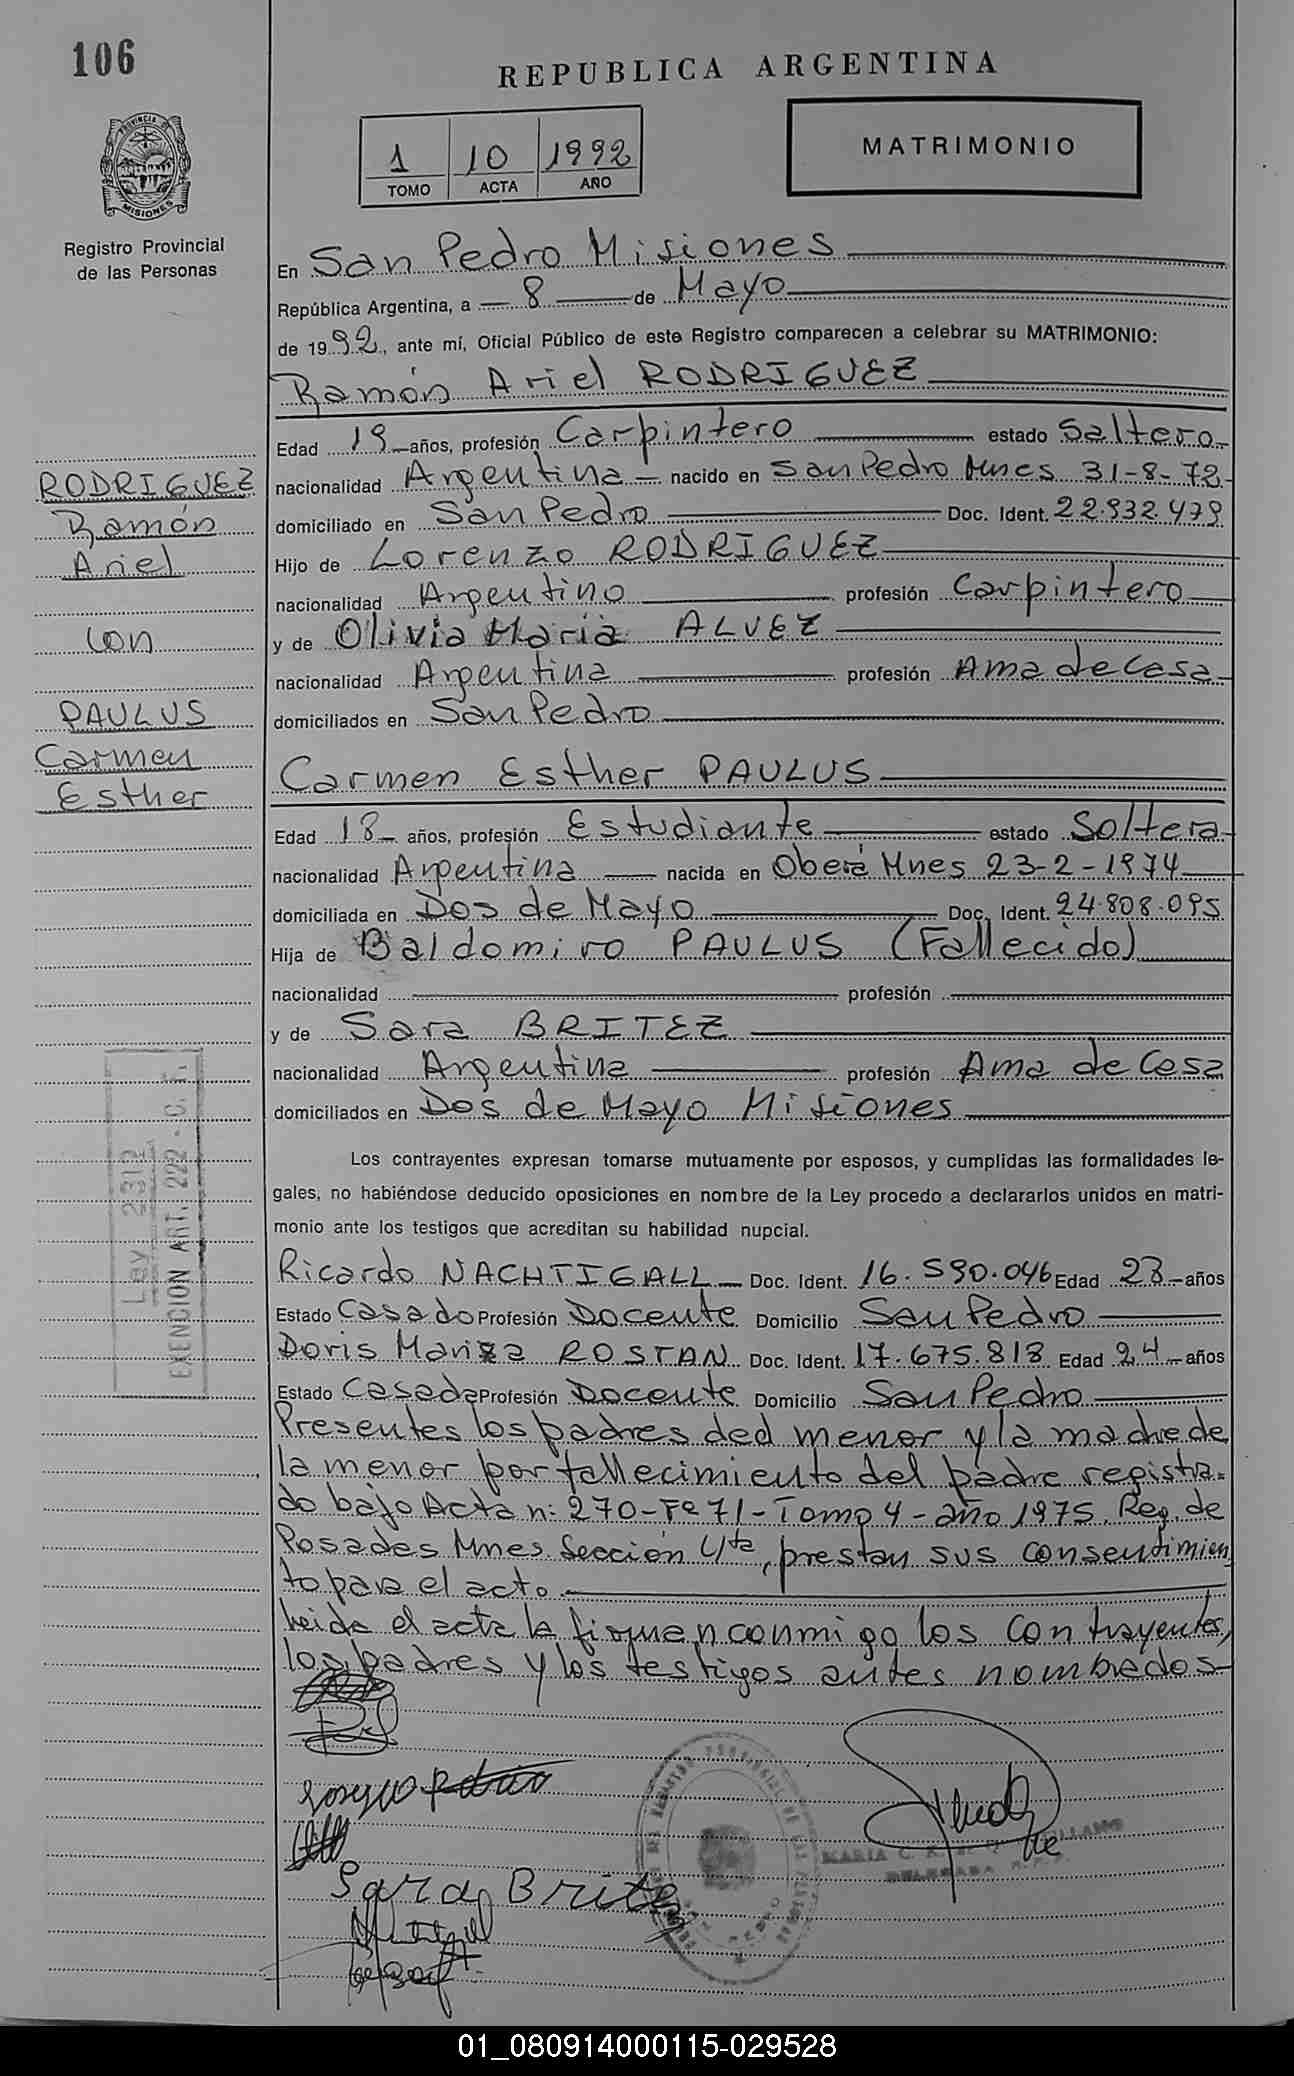 106
REPUBLICA ARGENTINA
1 10 1992
TOMO ACTA AÑO
MATRIMONIO
PROVINCIA DE MISIONES
Registro Provincial
de las Personas
En San Pedro Misiones
República Argentina, a 8 de Mayo
de 1992, ante mí, Oficial Público de este Registro comparecen a celebrar su MATRIMONIO:
Ramón Ariel RODRIGUEZ
Edad 19 años, profesión Carpintero estado Saltero
RODRIGUEZ
Ramón
Ariel
con
PAULUS
Carmen
Esther
nacionalidad Argentina nacido en San Pedro Mnes 31-8-72
domiciliado en San Pedro Doc. Ident. 22.932.479
Hijo de Lorenzo RODRIGUEZ
nacionalidad Argentino profesión Carpintero
y de Olivia Maria ALVEZ
nacionalidad Argentina profesión Ama de Casa
domiciliados en San Pedro
Carmen Esther PAULUS
Edad 18 años, profesión Estudiante estado Soltera
nacionalidad Argentina nacida en Oberá Mnes 23-2-1974
domiciliada en Dos de Mayo Doc. Ident. 24.808.095
Hija de Baldomiro PAULUS (Fallecido)
nacionalidad profesión
y de Sara BRITEZ
nacionalidad Argentina profesión Ama de Casa
domiciliados en Dos de Mayo Misiones
Los contrayentes expresan tomarse mutuamente por esposos, y cumplidas las formalidades le-
gales, no habiéndose deducido oposiciones en nombre de la Ley procedo a declararlos unidos en matri-
monio ante los testigos que acreditan su habilidad nupcial.
Ley 2312
EXENCION ART. 222 - C. F.
Ricardo NACHTIGALL Doc. Ident. 16.590.046 Edad 23 años
Estado Casado Profesión Docente Domicilio San Pedro
Doris Mariza ROSTAN Doc. Ident. 17.675.818 Edad 24 años
Estado Casada Profesión Docente Domicilio San Pedro
Presentes los padres ded menor y la madre de
la menor por fallecimiento del padre registra-
do bajo Acta n: 270-Fº 71-Tomo 4-año 1975. Reg. de
Posadas Mnes Sección 4ta, prestan sus consentimien
to para el acto.
Leida el acta la firman conmigo los contrayentes,
los padres y los testigos antes nombrados
Sara Britez
01_080914000115-029528